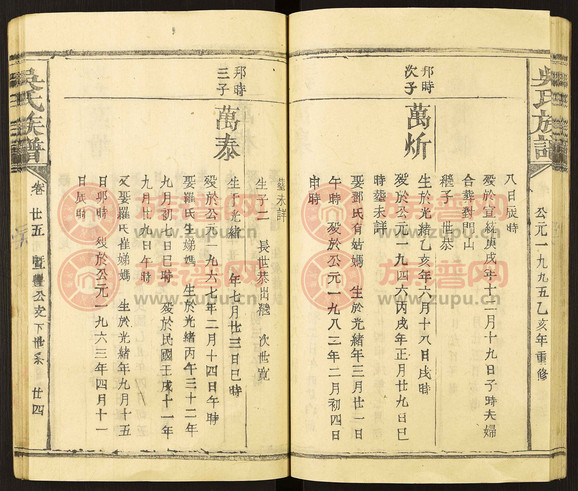 吳氏族譜
公元一九九五乙亥年重修
八日辰時
歿於宣統庚戌年十二月十九日子時夫婦
合葬對門山
繼子 世恭
邦時
次子
萬炘
生於光緒乙亥年六月十八日戌時
歿於公元一九四六丙戌年正月廿九日巳
時墓未詳
娶鄧氏有姑媽 生於光緒 年三月廿一日
午時 歿於公元一九八二年二月初四日
申時
墓未詳
生子二 長世恭出繼 次世寬
邦時
三子
萬泰
生於光緒 年七月廿三日巳時
歿於公元一九六七年二月十四日午時
娶羅氏生娣媽 生於光緒丙午三十二年
九月初七日巳時 歿於民國壬戌十一年
九月廿九日午時
又娶羅氏崔娣媽 生於光緒年九月十五
日卯時 歿於公元一九六三年四月十一
日辰時
吳氏族譜
卷廿五
暨 公支下世系
廿四
族譜网
www.zupu.cn